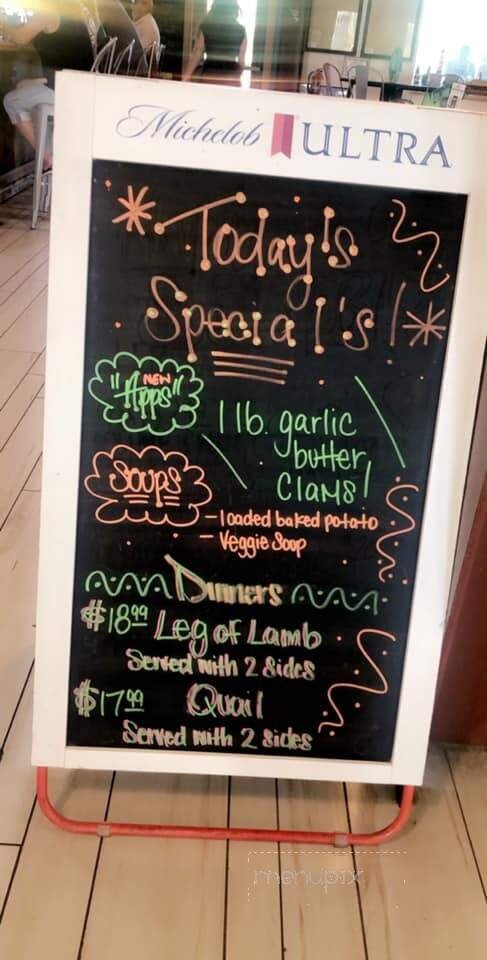 Michelob ULTRA
Today's
Special's!
NEW
"Apps"
1 lb. garlic
butter
Clams!
Soups
- loaded baked potato
- Veggie Soup
Dinners
$18.99 Leg of Lamb
Served with 2 Sides
$17.99 Quail
Served with 2 Sides
menupix